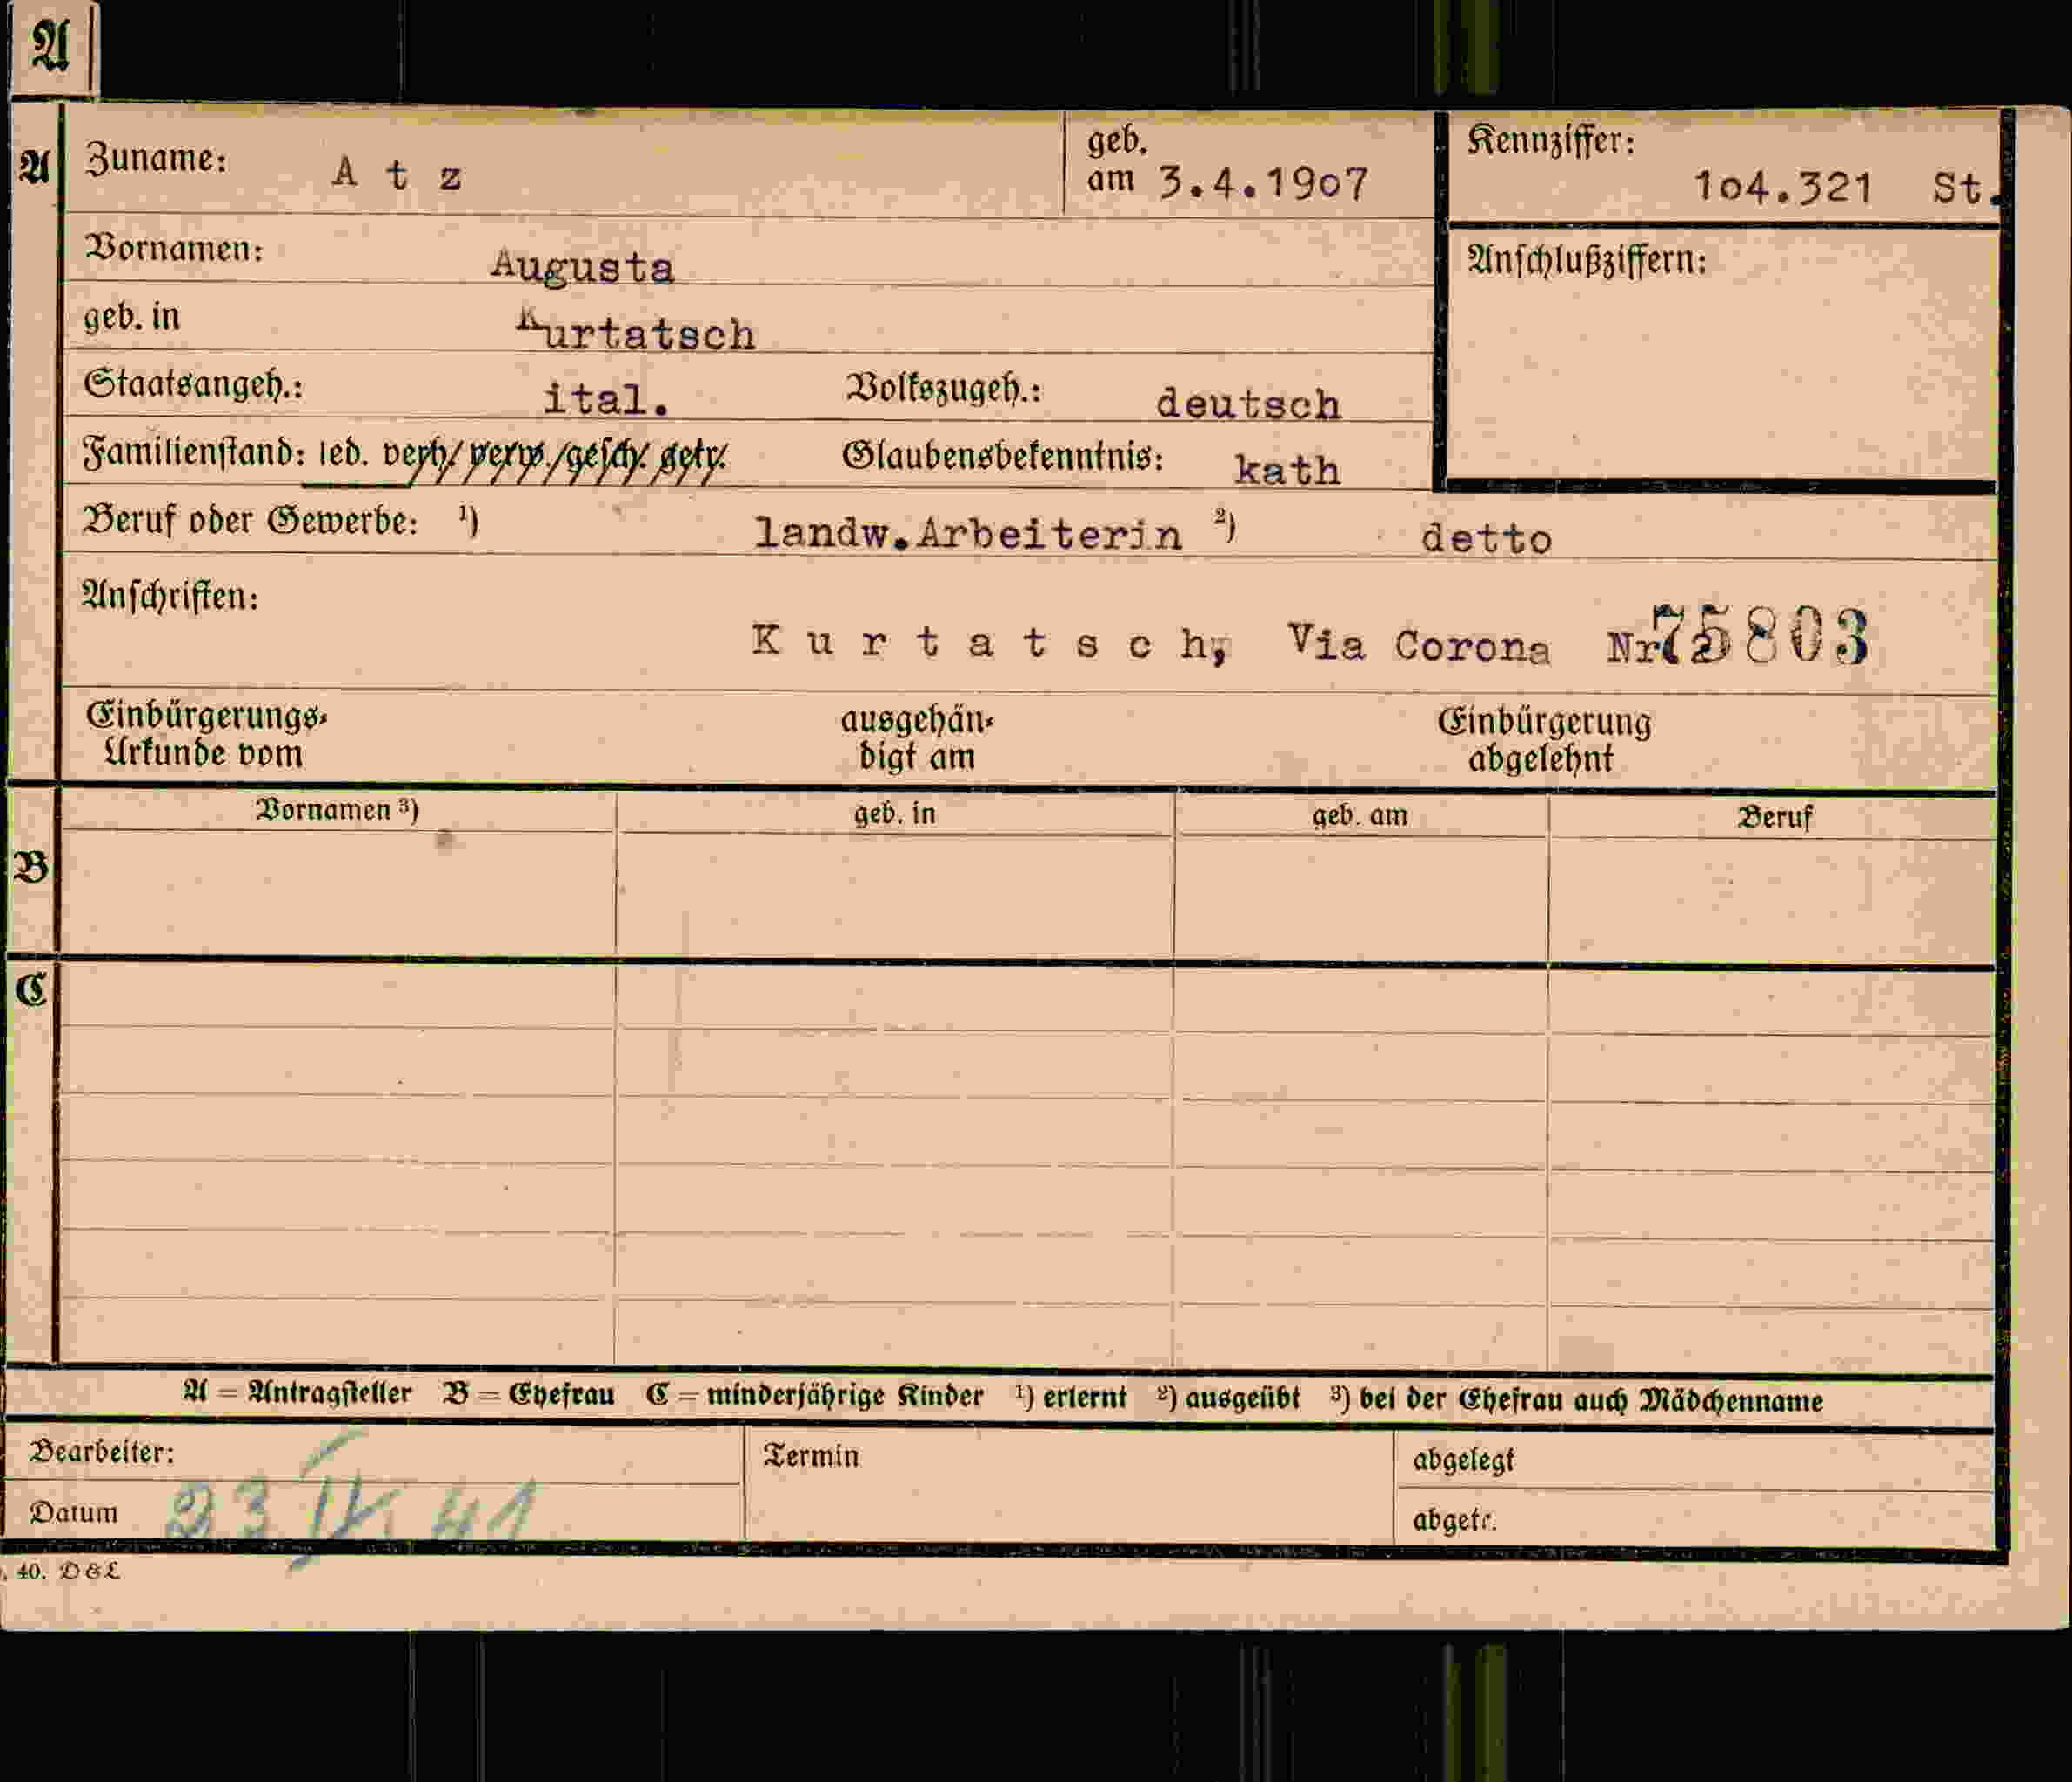 A
A Zuname: A t z geb. am 3.4.1907 Kennziffer: 104.321 St.
Vornamen: Augusta Anschlußziffern:
geb. in Kurtatsch
Staatsangeh.: ital. Volkszugeh.: deutsch
Familienstand: led. verh./verw./gesch. getr. Glaubensbekenntnis: kath
Beruf oder Gewerbe: ¹) landw.Arbeiterin ²) detto
Anschriften:
K u r t a t s c h, Via Corona Nr 75803
Einbürgerungs- ausgehän- Einbürgerung
Urkunde vom digt am abgelehnt
Vornamen ³) geb. in geb. am Beruf
B
C
A = Antragsteller B = Ehefrau C = minderjährige Kinder ¹) erlernt ²) ausgeübt ³) bei der Ehefrau auch Mädchenname
Bearbeiter: Termin abgelegt
Datum 23 IX. 41 abgetr.
. 40. D&L